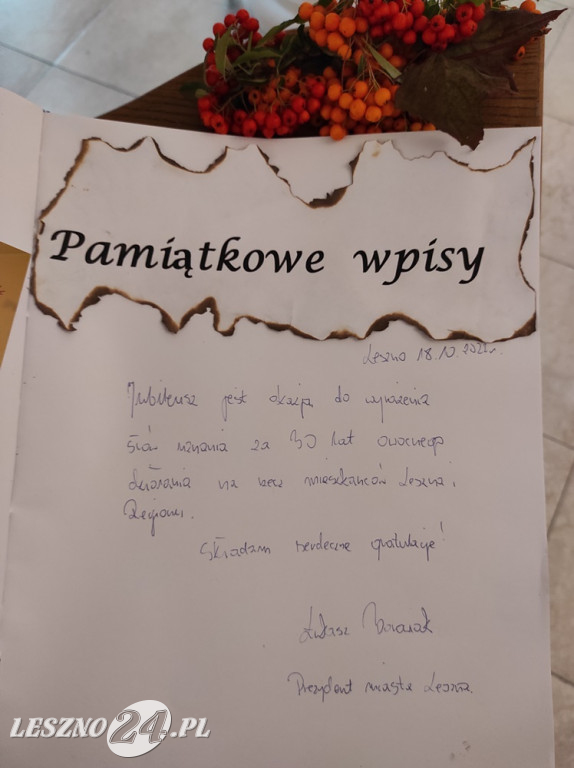 Pamiątkowe wpisy
Leszno 18.10.2021r.
Jubileusz jest okazją do wyrażenia
słów uznania za 30 lat owocnego
działania na rzecz mieszkańców Leszna i
Regionu.
Składam serdeczne gratulacje!
Łukasz Borowiak
Prezydent miasta Leszna.
LESZNO24.PL